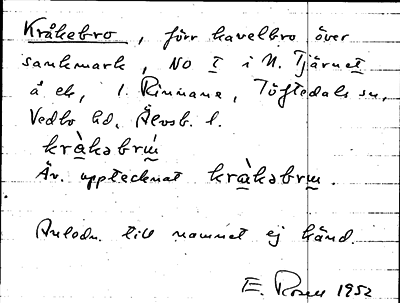 Kråkebro, förr kavelbro över
sankmark, NO I i N. Tjärnet
å ek, l. Rinnana, Töftedals sn,
Vedbo hd, Älvsb. l.
kràkəbrɯ́
Äv. upptecknat kràkəbrɯ.
Anledn. till namnet ej känd.
E. Rosen 1952